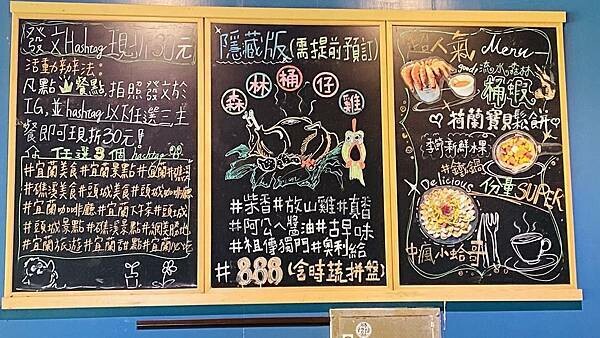 發文Hashtag現折30元
活動辦法:
凡點餐點拍照發文於
IG,並hashtag以下任選三主
餐即可現折30元!
任選3個hashtag
#宜蘭美食#宜蘭景點#宜蘭礁溪
#礁溪美食#頭城美食#頭城咖啡廳
#宜蘭咖啡廳#宜蘭下午茶#頭城
#頭城景點#礁溪景點#網美勝地
#宜蘭旅遊#宜蘭甜點#宜蘭
隱藏版(需提前預訂)
森林桶仔雞
#柴香#放山雞#真香
#阿公ㄟ醬油#古早味
#祖傳獨門#奧利給
#888(含時蔬拼盤)
超人氣 Menu
Goods 流水森林
糯蝦
荷蘭寶貝鬆餅
季節新鮮水果
#鑄鐵鍋
Delicious 份量SUPER
中瘋小蛤哥